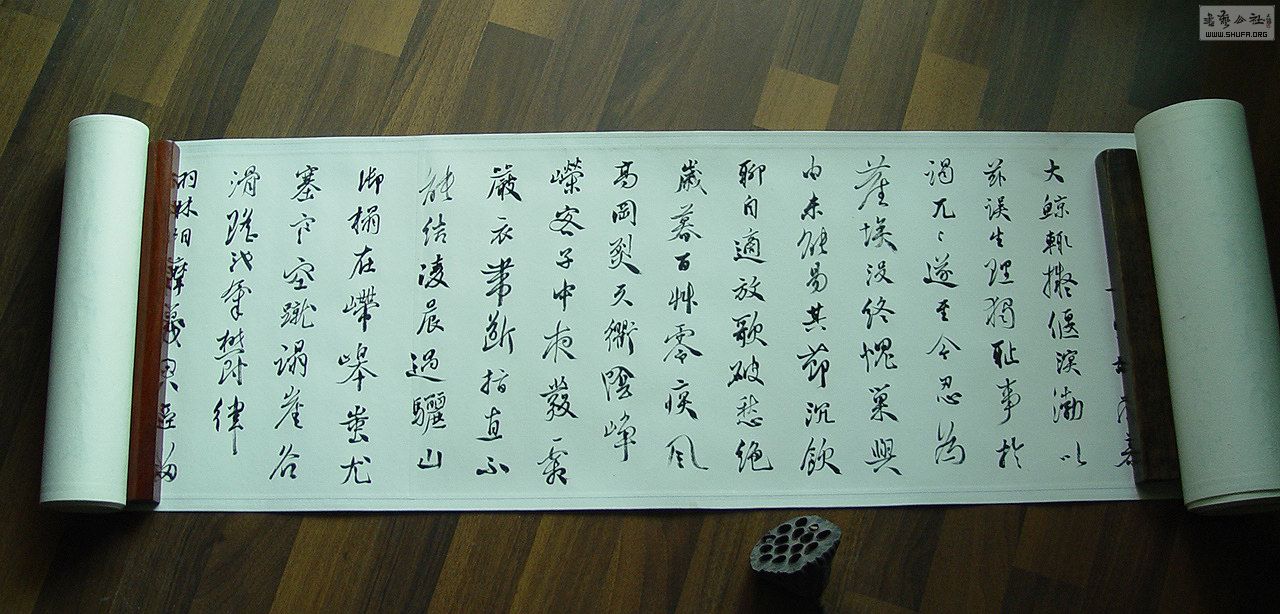 大鯨輒擬偃溟渤以
茲誤生理獨恥事於
謁兀〻遂至今忍為
塵埃沒終愧巢與
由未能易其節沉飲
聊自適放歌破愁絕
歲暮百艸零疾風
高岡裂天衢陰崢
嶸客子中夜發霜
嚴衣帶斷指直不
能結凌晨過驪山
御榻在嵽嵲蚩尤
塞寒空蹴蹋崖谷
滑瑤池氣鬱律
羽林相摩戛君臣留
書藝公社
WWW.SHUFA.ORG